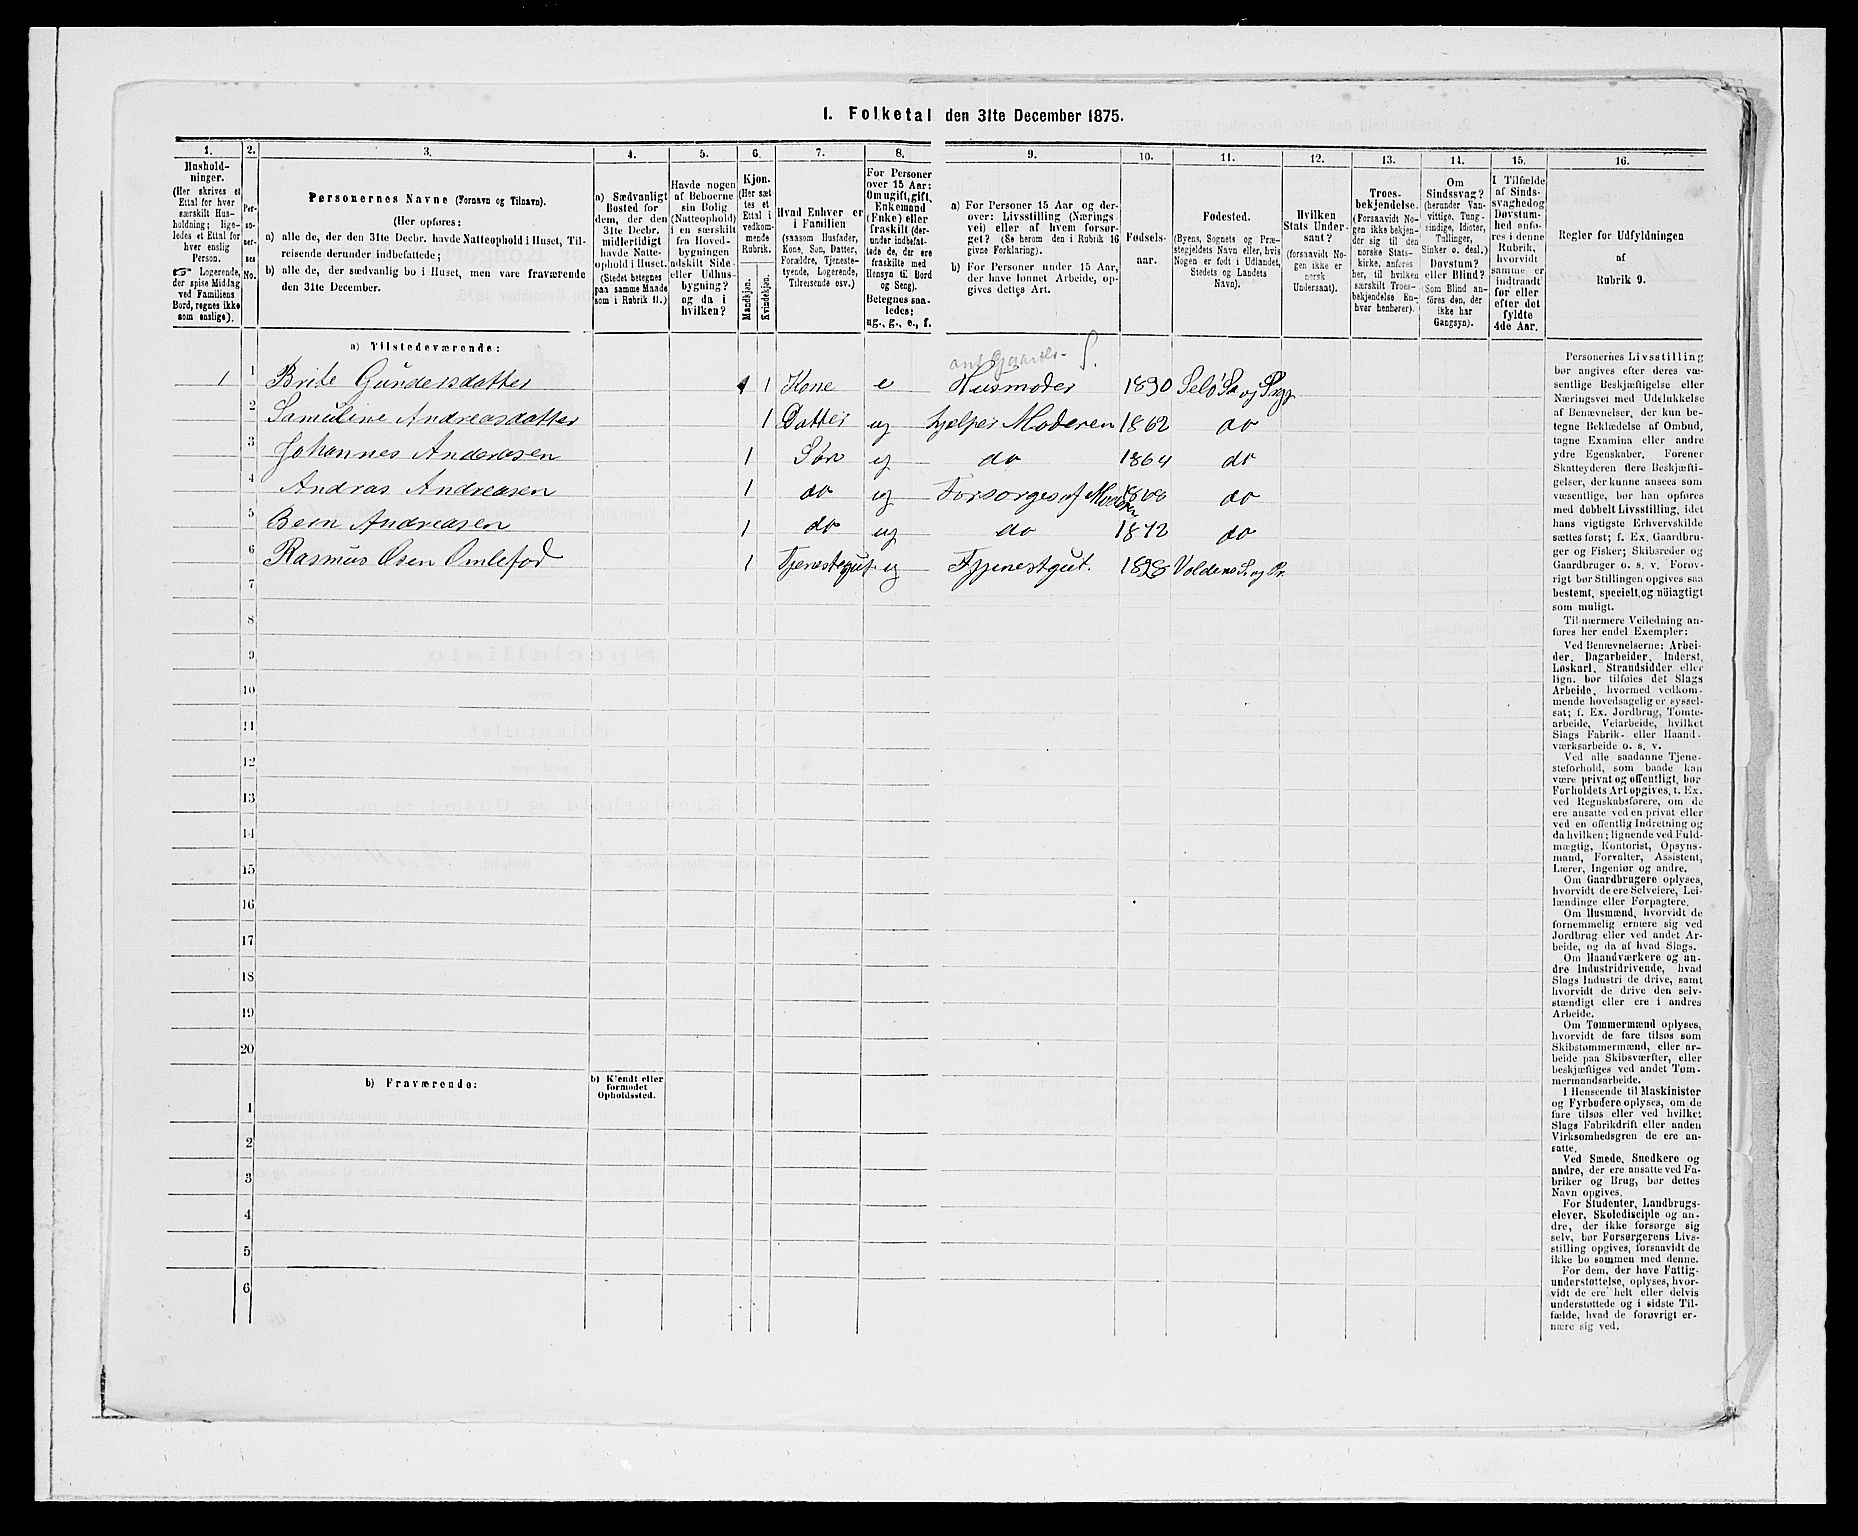 1. Folketal den 31te December 1875.
1.
Hushold-
ninger.
(Her skrives et
Ettal for hver
særskilt Hus-
holdning; lige-
ledes et Ettal for
hver enslig
Person.
☞ Logerende,
der spise Middag
ved Familiens
Bord, regnes ikke
som enslige).
2.
Per-
so-
ner-
nes
No.
3.
Personernes Navne (Fornavn og Tilnavn).
(Her opføres:
a) alle de, der den 31te Decbr. havde Natteophold i Huset, Til-
reisende derunder indbefattede;
b) alle de, der sædvanlig bo i Huset, men vare fraværende
den 31te December.
4.
a) Sædvanligt
Bosted for
dem, der den
31te Decbr.
midlertidigt
havde Natte-
ophold i Huset.
(Stedet betegnes
paa samme Maade
som i Rubrik 11.)
5.
Havde nogen
af Beboerne
sin Bolig
(Natteophold)
i en særskilt
fra Hoved-
bygningen
adskilt Side-
eller Udhus-
bygning?
og da i
hvilken?
6.
Kjøn.
(Her sæt-
tes et
Ettal i
vedkom-
mende
Rubrik.
Mandkjøn.
Kvindekjøn.
7.
Hvad Enhver er
i Familien
(saasom Husfader,
Kone, Søn, Datter,
Forældre, Tjeneste-
tyende, Logerende,
Tilreisende osv.)
8.
For Personer
over 15 Aar:
Om ugift, gift,
Enkemand
(Enke) eller
fraskilt (der-
under indbefat-
tede de, der ere
fraskilte med
Hensyn til Bord
og Seng).
Betegnes saa-
ledes:
ug., g., e., f.
9.
a) For Personer 15 Aar og der-
over: Livsstilling (Nærings-
vei) eller af hvem forsør-
get? (Se herom den i Rubrik 16
givne Forklaring).
b) For Personer under 15 Aar,
der have lønnet Arbeide, op-
gives dettes Art.
10.
Fødsels-
aar.
11.
Fødested.
(Byens, Sognets og Præ-
stegjeldets Navn eller, hvis
Nogen er født i Udlandet,
Stedets og Landets
Navn).
12.
Hvilken
Stats Under-
saat?
(forsaavidt No-
gen ikke er
norsk
Undersaat).
13.
Troes-
bekjendelse.
(Forsaavidt No-
gen ikke bekjen-
der sig til den
norske Stats-
kirke, anføres
her, til hvilken
særskilt Troes-
bekjendelse En-
hver henhører).
14.
Om
Sindssvag?
(herunder Van-
vittige, Tung-
sindige, Idioter,
Tullinger,
Sinker o. desl.)
Døvstum?
eller Blind?
(Som Blind an-
føres den, der
ikke har
Gangsyn).
15.
I Tilfælde
af Sinds-
svaghed og
Døvstum-
hed anfø-
res i denne
Rubrik,
hvorvidt
samme er
indtraadt
før eller
efter det
fyldte
4de Aar.
16.
Regler for Udfyldningen
af
Rubrik 9.
a) Tilstedeværende:
S.
1 1 Brite Gundersdatter 1 Kone e Husmoder 1830 Selø So og Prgj
2 Samuline Andreasdatter 1 Datter ug hjelper Moderen 1862 do
3 Johannes Andreasen 1 Søn ug do 1864 do
4 Andras Andreasen 1 do ug Forsorges af Moderen 1868 do
5 Bern Andreasen 1 do ug do 1872 do
6 Rasmus Osen Omlefod 1 Tjenestegut ug Tjenestgut. 1828 Voldens S. og Pr.
7
8
9
10
11
12
13
14
15
16
17
18
19
20
b) Fraværende:
b) Kjendt eller
formodet
Opholdssted.
1
2
3
4
5
6
Personernes Livsstilling
bør angives efter deres væ-
sentlige Beskjæftigelse eller
Næringsvei med Udelukkelse
af Benævnelser, der kun be-
tegne Beklædelse af Ombud,
tagne Examina eller andre
ydre Egenskaber. Forener
Skatteyderen flere Beskjæfti-
gelser, der kunne ansees som
væsentlige, bør han opføres
med dobbelt Livsstilling, idet
hans vigtigste Erhvervskilde
sættes først; f. Ex. Gaardbru-
ger og Fisker; Skibsreder og
Gaardbruger o. s. v. Forøv-
rigt bør Stillingen opgives saa
bestemt, specielt og nöiagtigt
som muligt.
Til nærmere Veiledning an-
føres her endel Exempler:
Ved Benævnelserne: Arbei-
der, Dagarbeider, Inderst,
Løskarl, Strandsidder eller
lign. bør tilføies det Slags
Arbeide, hvormed vedkom-
mende hovedsagelig er syssel-
sat; f. Ex. Jordbrug, Tomte-
arbeide, Veiarbeide, hvilket
Slags Fabrik- eller Haand-
værksarbeide o. s. v.
Ved alle saadanne Tjene-
steforhold, som baade kan
være privat og offentligt, bør
Forholdets Art opgives, f. Ex.
ved Regnskabsførere, om de
ere ansatte ved en privat eller
ved en offentlig Indretning og
da hvilken; lignende ved Fuld-
mægtig, Kontorist, Opsyns-
mand, Forvalter, Assistent,
Lærer, Ingeniør og andre.
Om Gaardbrugere oplyses,
hvorvidt de ere Selveiere, Lei-
lændinge eller Forpagtere.
Om Husmænd, hvorvidt de
fornemmelig ernære sig ved
Jordbrug eller ved andet Ar-
beide, og da af hvad Slags.
Om Haandværkere og an-
dre Industridrivende, hvad
Slags Industri de drive, samt
hvorvidt de drive den selv-
stændigt eller ere i andres
Arbeide.
Om Tømmermænd oplyses,
hvorvidt de fare tilsøs som
Skibstømmermænd, eller ar-
beide paa Skibsværfter, eller
beskjæftiges ved andet Tøm-
mermandsarbeide.
I Henseende til Maskinister
og Fyrbødere oplyses, om de
fare tilsøs eller ved hvilket
Slags Fabrikdrift eller anden
Virksomhedsgren de ere an-
satte.
Ved Smede, Snedkere og
andre, der ere ansatte ved Fa-
briker og Brug, bør dettes
Navn opgives.
For Studenter, Landbrugs-
elever, Skoledisciple og an-
dre, der ikke forsørge sig
selv, bør Forsørgerens Livs-
stilling opgives, forsaavidt de
ikke bo sammen med denne.
For dem, der have Fattig-
understøttelse, oplyses, hvor-
vidt de ere helt eller delvis
understøttede og i sidste Til-
fælde, hvad de forøvrigt er-
nære sig ved.